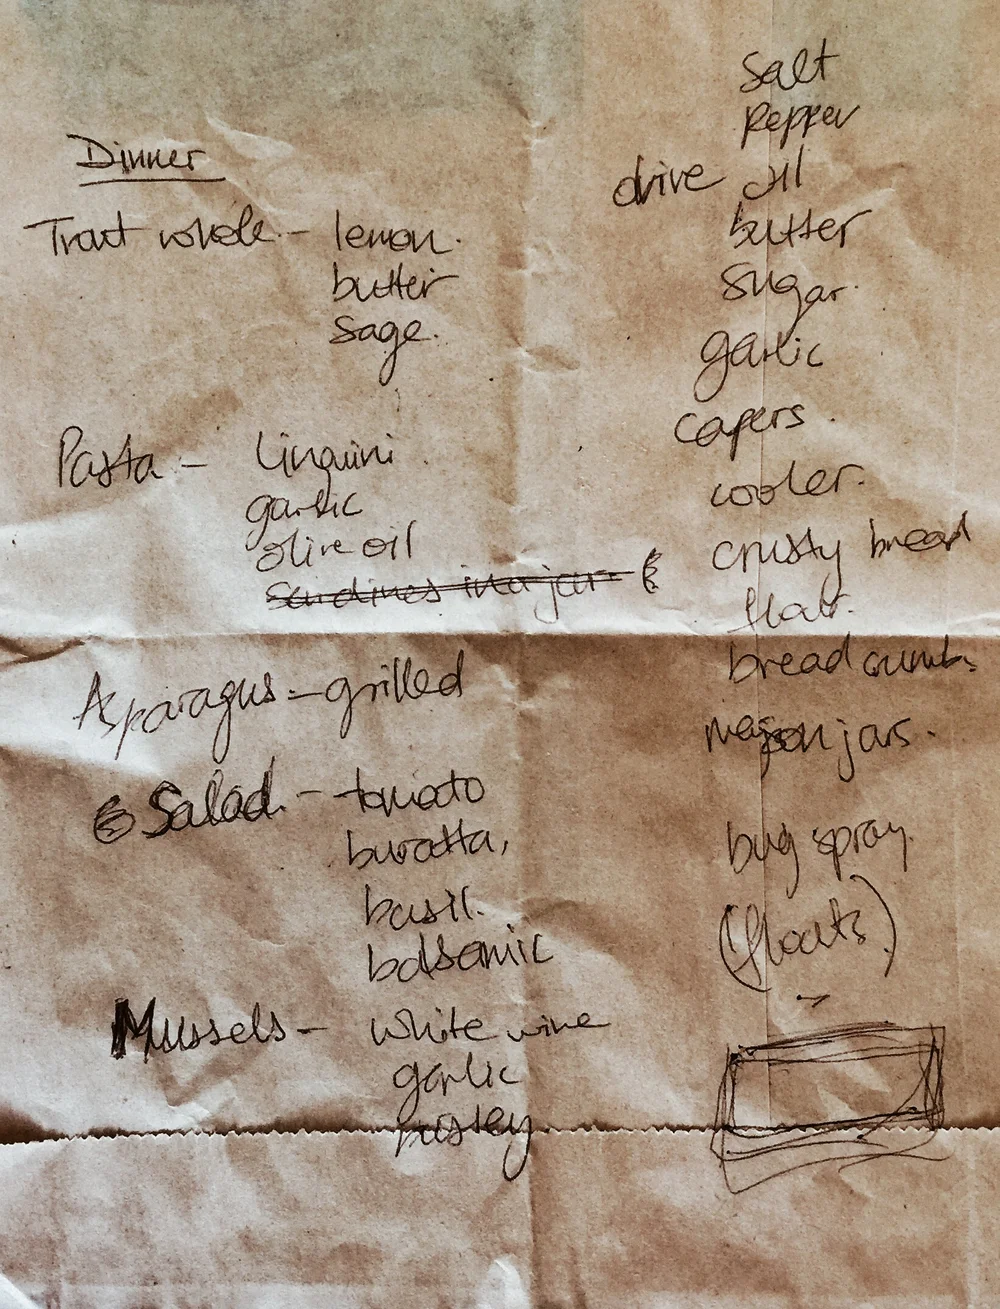 Dinner
Trout whole - lemon.
butter
sage.
Pasta - linguini
garlic
olive oil
sardines in a jar
Asparagus - grilled
Salad - tomato
buratta,
basil.
balsamic
Mussels - white wine
garlic
parsley
salt
pepper
olive oil
butter
sugar.
garlic
capers.
cooler.
crusty bread
flour.
bread crumbs
mason jars.
bug spray
(floats)